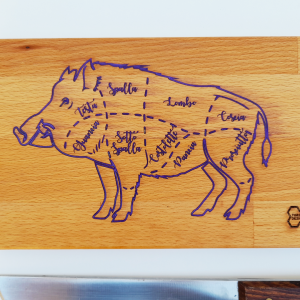 Spalla
Testa
Lombo
Coscia
Guanciale
Sotto
Spalla
Costolette
Pancia
Prosciutto